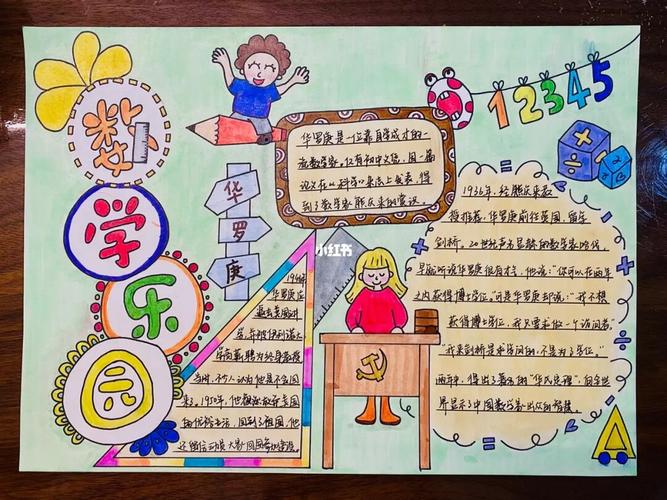 数
学
乐
园
12345
华
罗
庚
华罗庚是一位靠自学成才的一
流数学家,仅有初中文凭,因一篇
论文在《科学》杂志上发表,得
到了数学家熊庆来的赏识
1936年,经熊庆来教
授推荐,华罗庚前往英国,留学
剑桥。20世纪声名显赫的数学家哈代,
早就听说华罗庚很有才气,他说:"你可以在两年
之内获得博士学位。"可是华罗庚却说:"我不想
获得博士学位,我只要求做一个访问者"
"我来剑桥是求学问的,不是为了学位。"
两年中,得出了著名的"华氏定理",向全世
界显示了中国数学家出众的智慧。
华罗庚应
邀去美国讲
学,并被伊利诺大
学高薪聘为终身教授
当时,不少人认为他是不会回
来。1950年,他毅然放弃美国
的优裕生活,回到了祖国,他
还
小红书